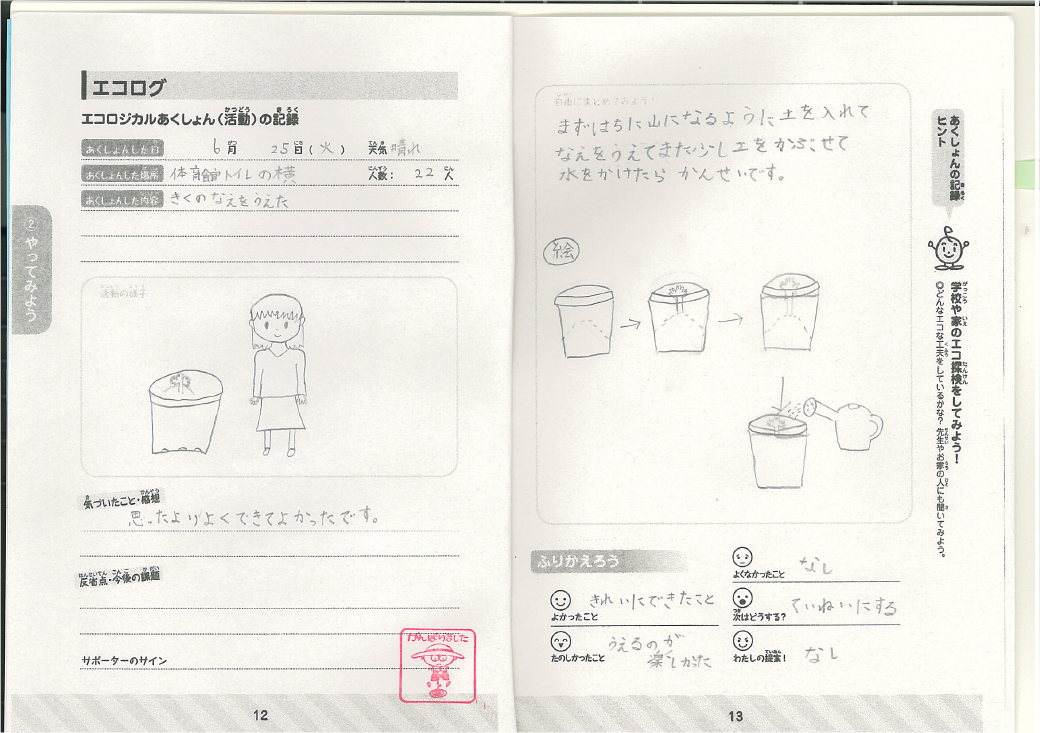 エコログ
エコロジカルあくしょん(活動)の記録
あくしょんした日 6月 25日(火) 天気 晴れ
あくしょんした場所 体育館トイレの横 人数: 22人
あくしょんした内容 きくのなえをうえた
② やってみよう
活動の様子
気づいたこと・感想
思ったよりよくできてよかったです。
反省点・今後の課題
サポーターのサイン
がんばりました
12
自由にまとめてみよう!
まずはちに山になるように土を入れて
なえをうえてまた少し土をかぶせて
水をかけたら かんせいです。
絵
ふりかえろう
よかったこと きれいにできたこと
たのしかったこと うえるのが
楽しかた
よくなかったこと なし
次はどうする? ていねいにする
わたしの提案! なし
あくしょんの記録
ヒント
学校や家のエコ探検をしてみよう!
◎どんなエコな工夫をしているかな? 先生やお家の人にも聞いてみよう。
13